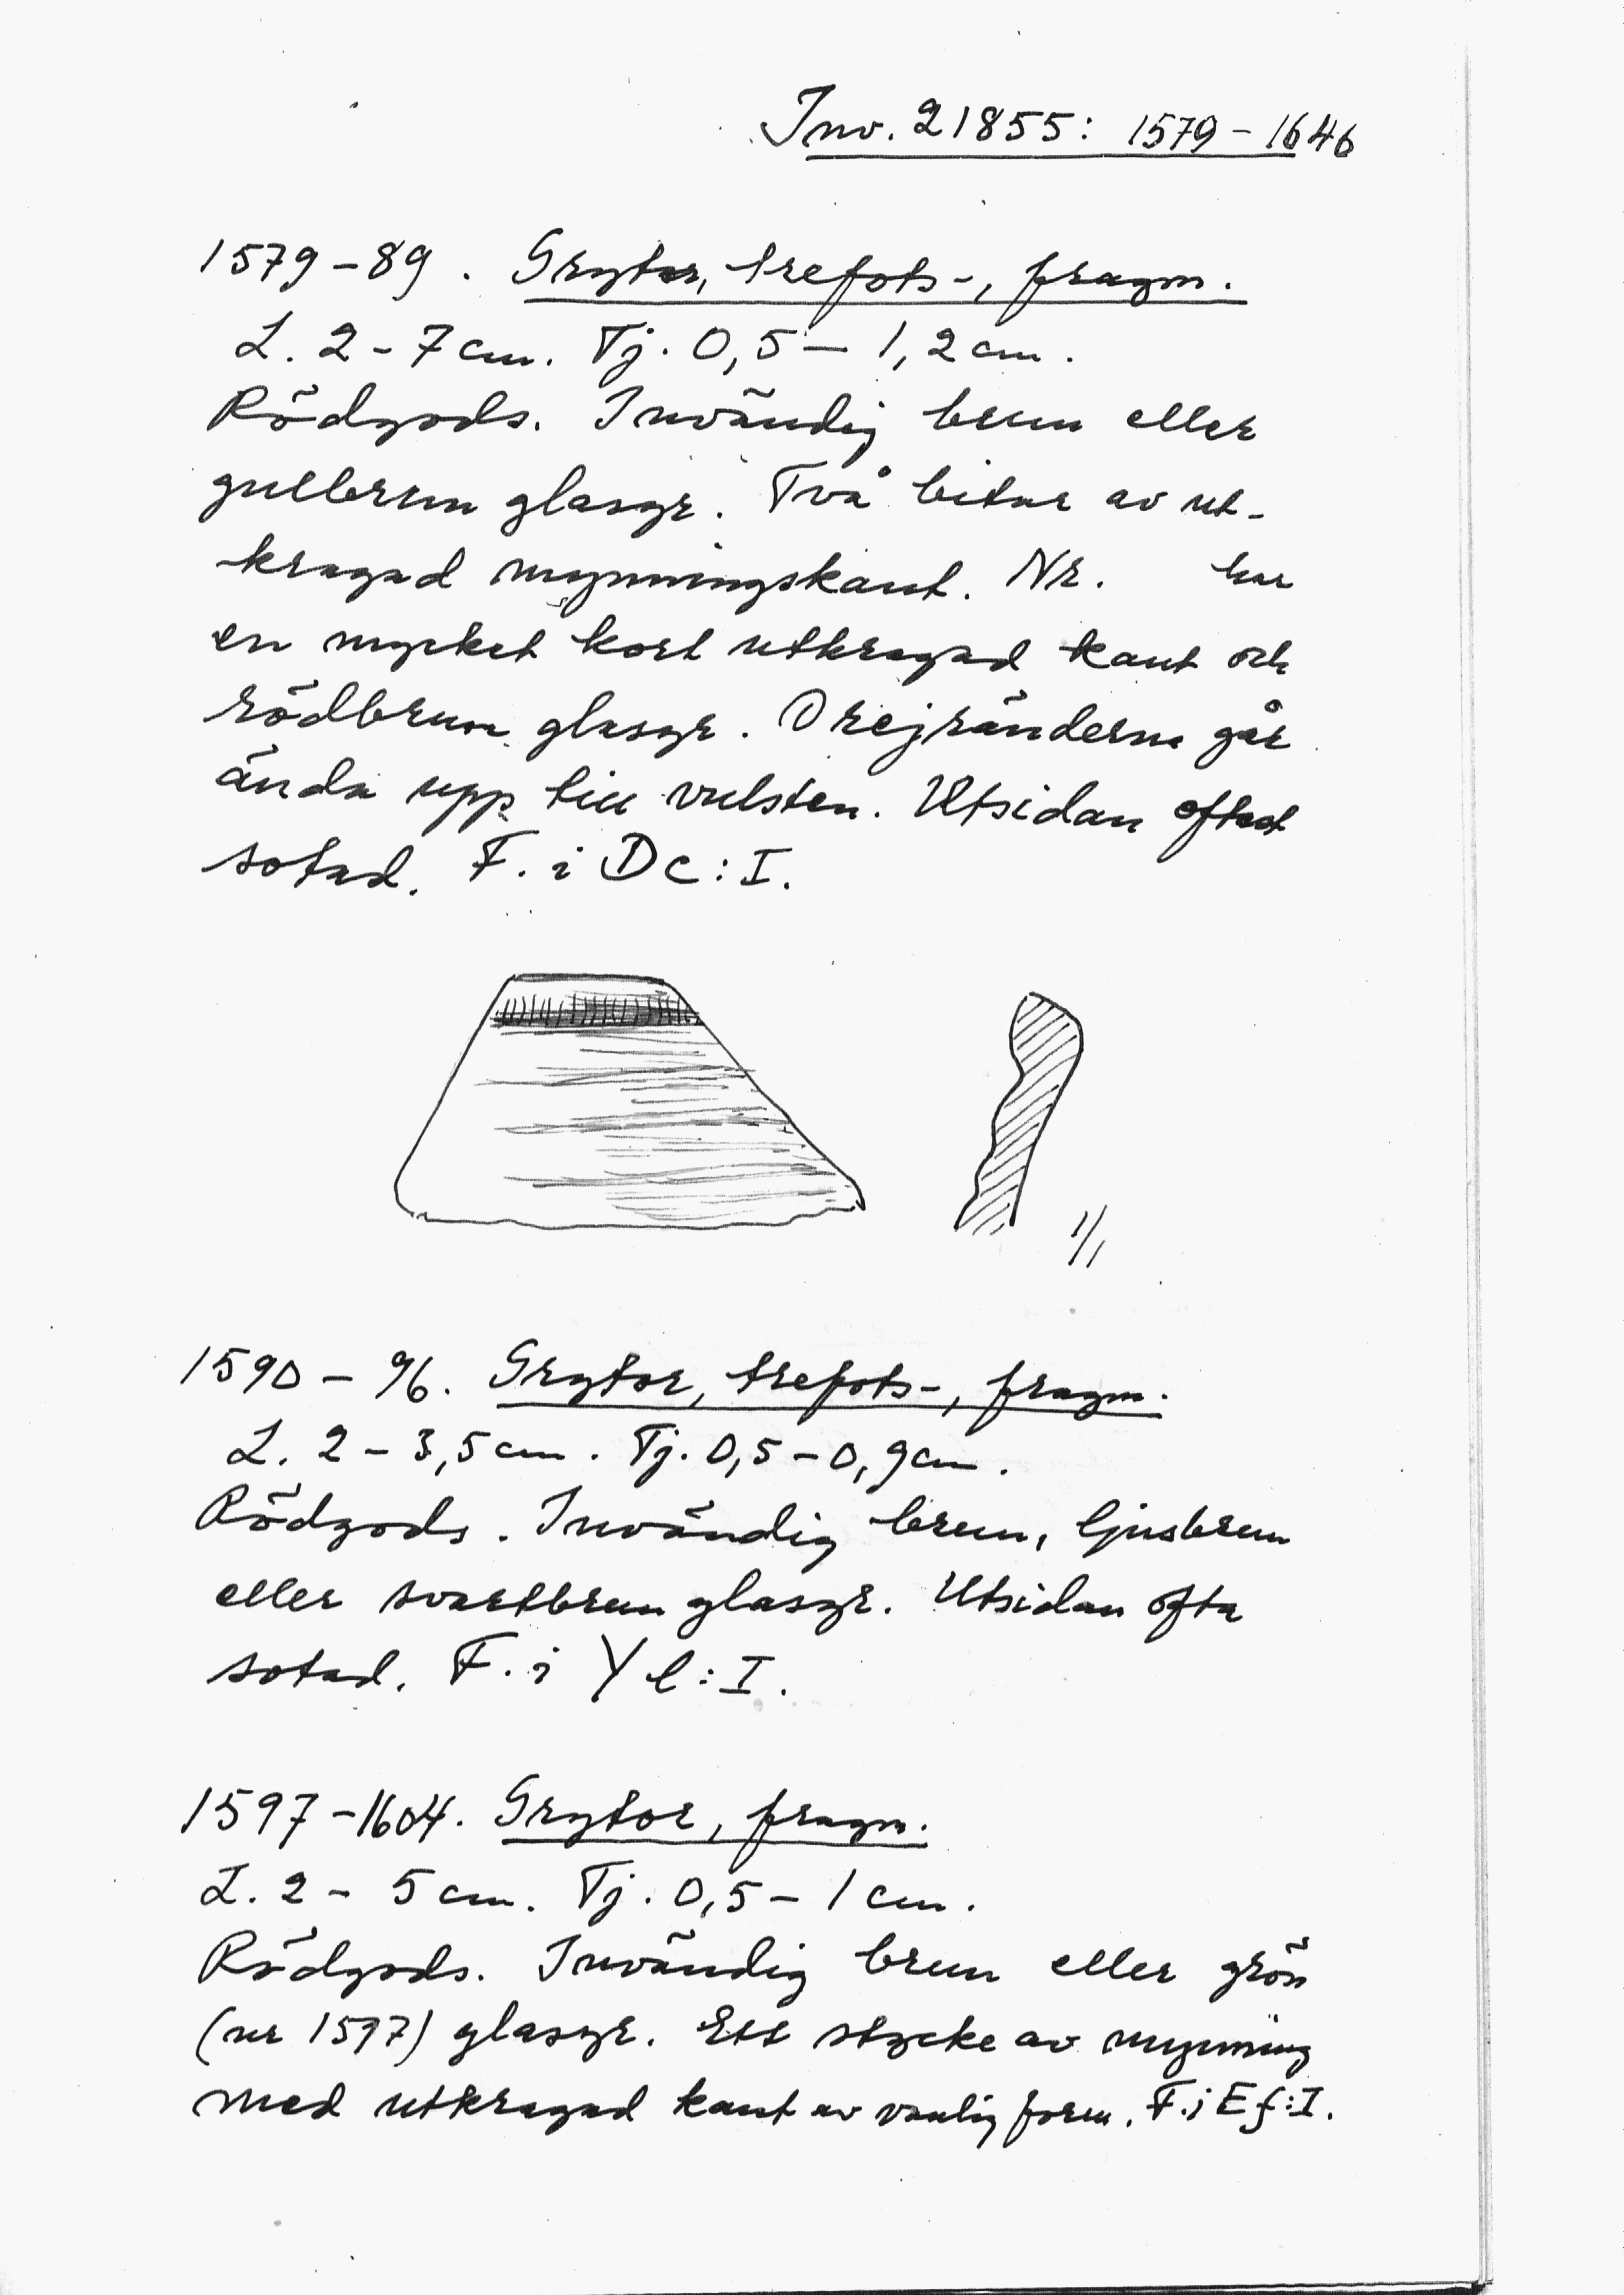 Inv. 21855: 1579 - 1646
1579-89. Grytor, trefots-, fragm.
L. 2 - 7 cm. Tj. 0,5 - 1,2 cm.
Rödgods. Invändig brun eller
gulbrun glasyr. Två bitar av ut-
kragad mynningskant. Nr. har
en mycket kort utkragad kant och
rödbrun glasyr. Drejränderna går
ända upp till vulsten. Utsidan oftast
sotad. F. i Dc:I.
1/1
1590 - 96. Grytor, trefots-, fragm.
L. 2 - 3,5 cm. Tj. 0,5 - 0,9 cm.
Rödgods. Invändig brun, ljusbrun
eller svartbrun glasyr. Utsidan ofta
sotad. F. i Yl:I.
1597-1604. Grytor, fragm.
L. 2 - 5 cm. Tj. 0,5 - 1 cm.
Rödgods. Invändig brun eller grön
(nr 1597) glasyr. Ett stycke av mynning
med utkragad kant av vanlig form. F. i Ef:I.